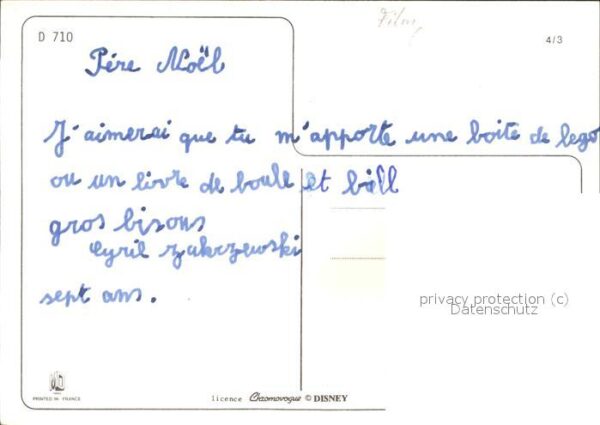 D 710
Film!
4/3
Père Noël
J'aimerai que tu m'apporte une boite de lego
ou un livre de boule et bill
gros bisous
Cyril Zakrzewski
sept ans.
privacy protection (c)
Datenschutz
PRINTED IN FRANCE
licence Chromovogue © DISNEY